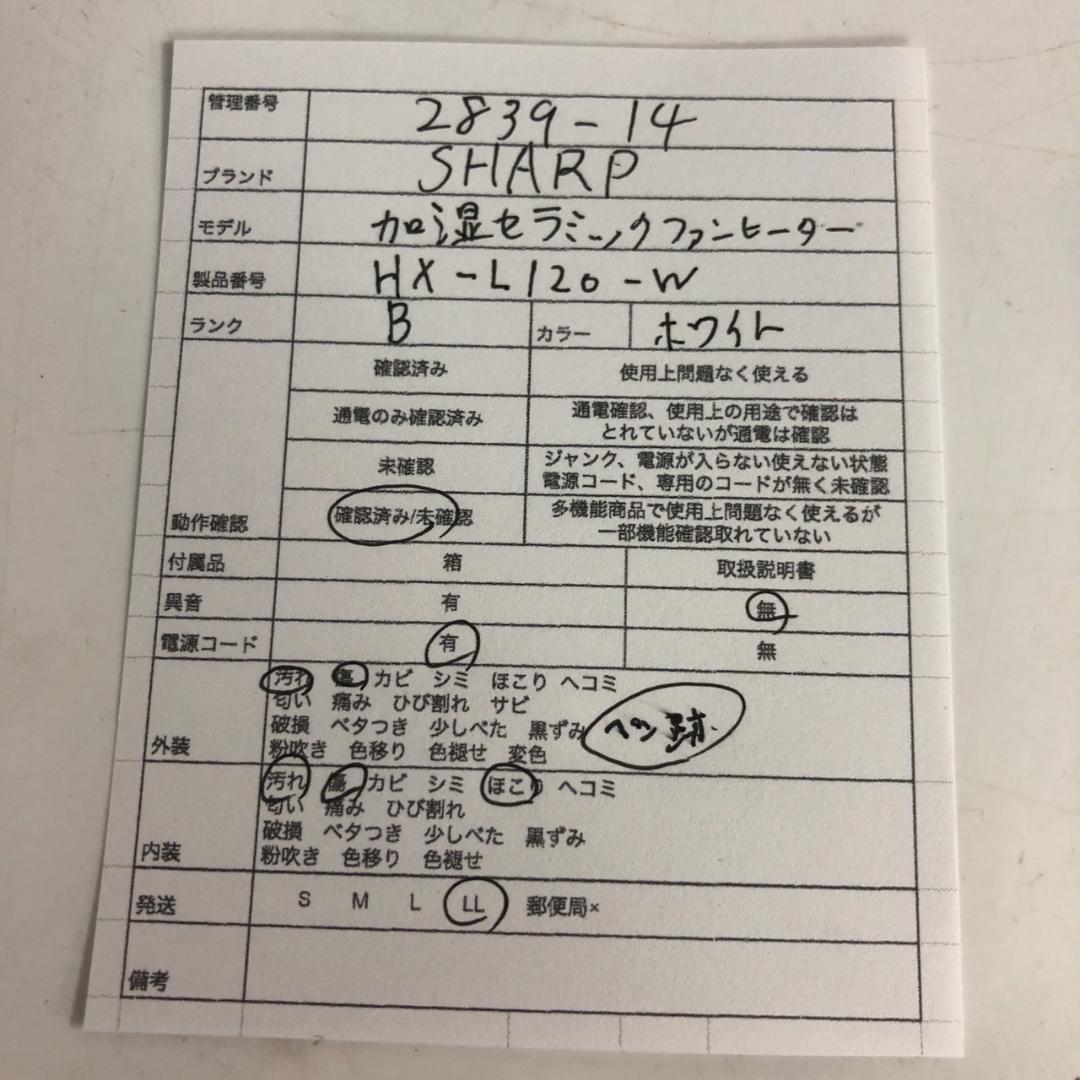 管理番号 2839-14
ブランド SHARP
モデル 加湿セラミックファンヒーター
製品番号 HX-L120-W
ランク B カラー ホワイト
確認済み 使用上問題なく使える
通電のみ確認済み 通電確認、使用上の用途で確認は
とれていないが通電は確認
未確認 ジャンク、電源が入らない使えない状態
電源コード、専用のコードが無く未確認
動作確認 確認済み/未確認 多機能商品で使用上問題なく使えるが
一部機能確認取れていない
付属品 箱 取扱説明書
異音 有 無
電源コード 有 無
汚れ 傷 カビ シミ ほこり ヘコミ
匂い 痛み ひび割れ サビ
破損 ベタつき 少しべた 黒ずみ ペン跡.
外装 粉吹き 色移り 色褪せ 変色
汚れ 傷 カビ シミ ほこり ヘコミ
匂い 痛み ひび割れ
破損 ベタつき 少しべた 黒ずみ
内装 粉吹き 色移り 色褪せ
発送 S M L LL 郵便局×
備考